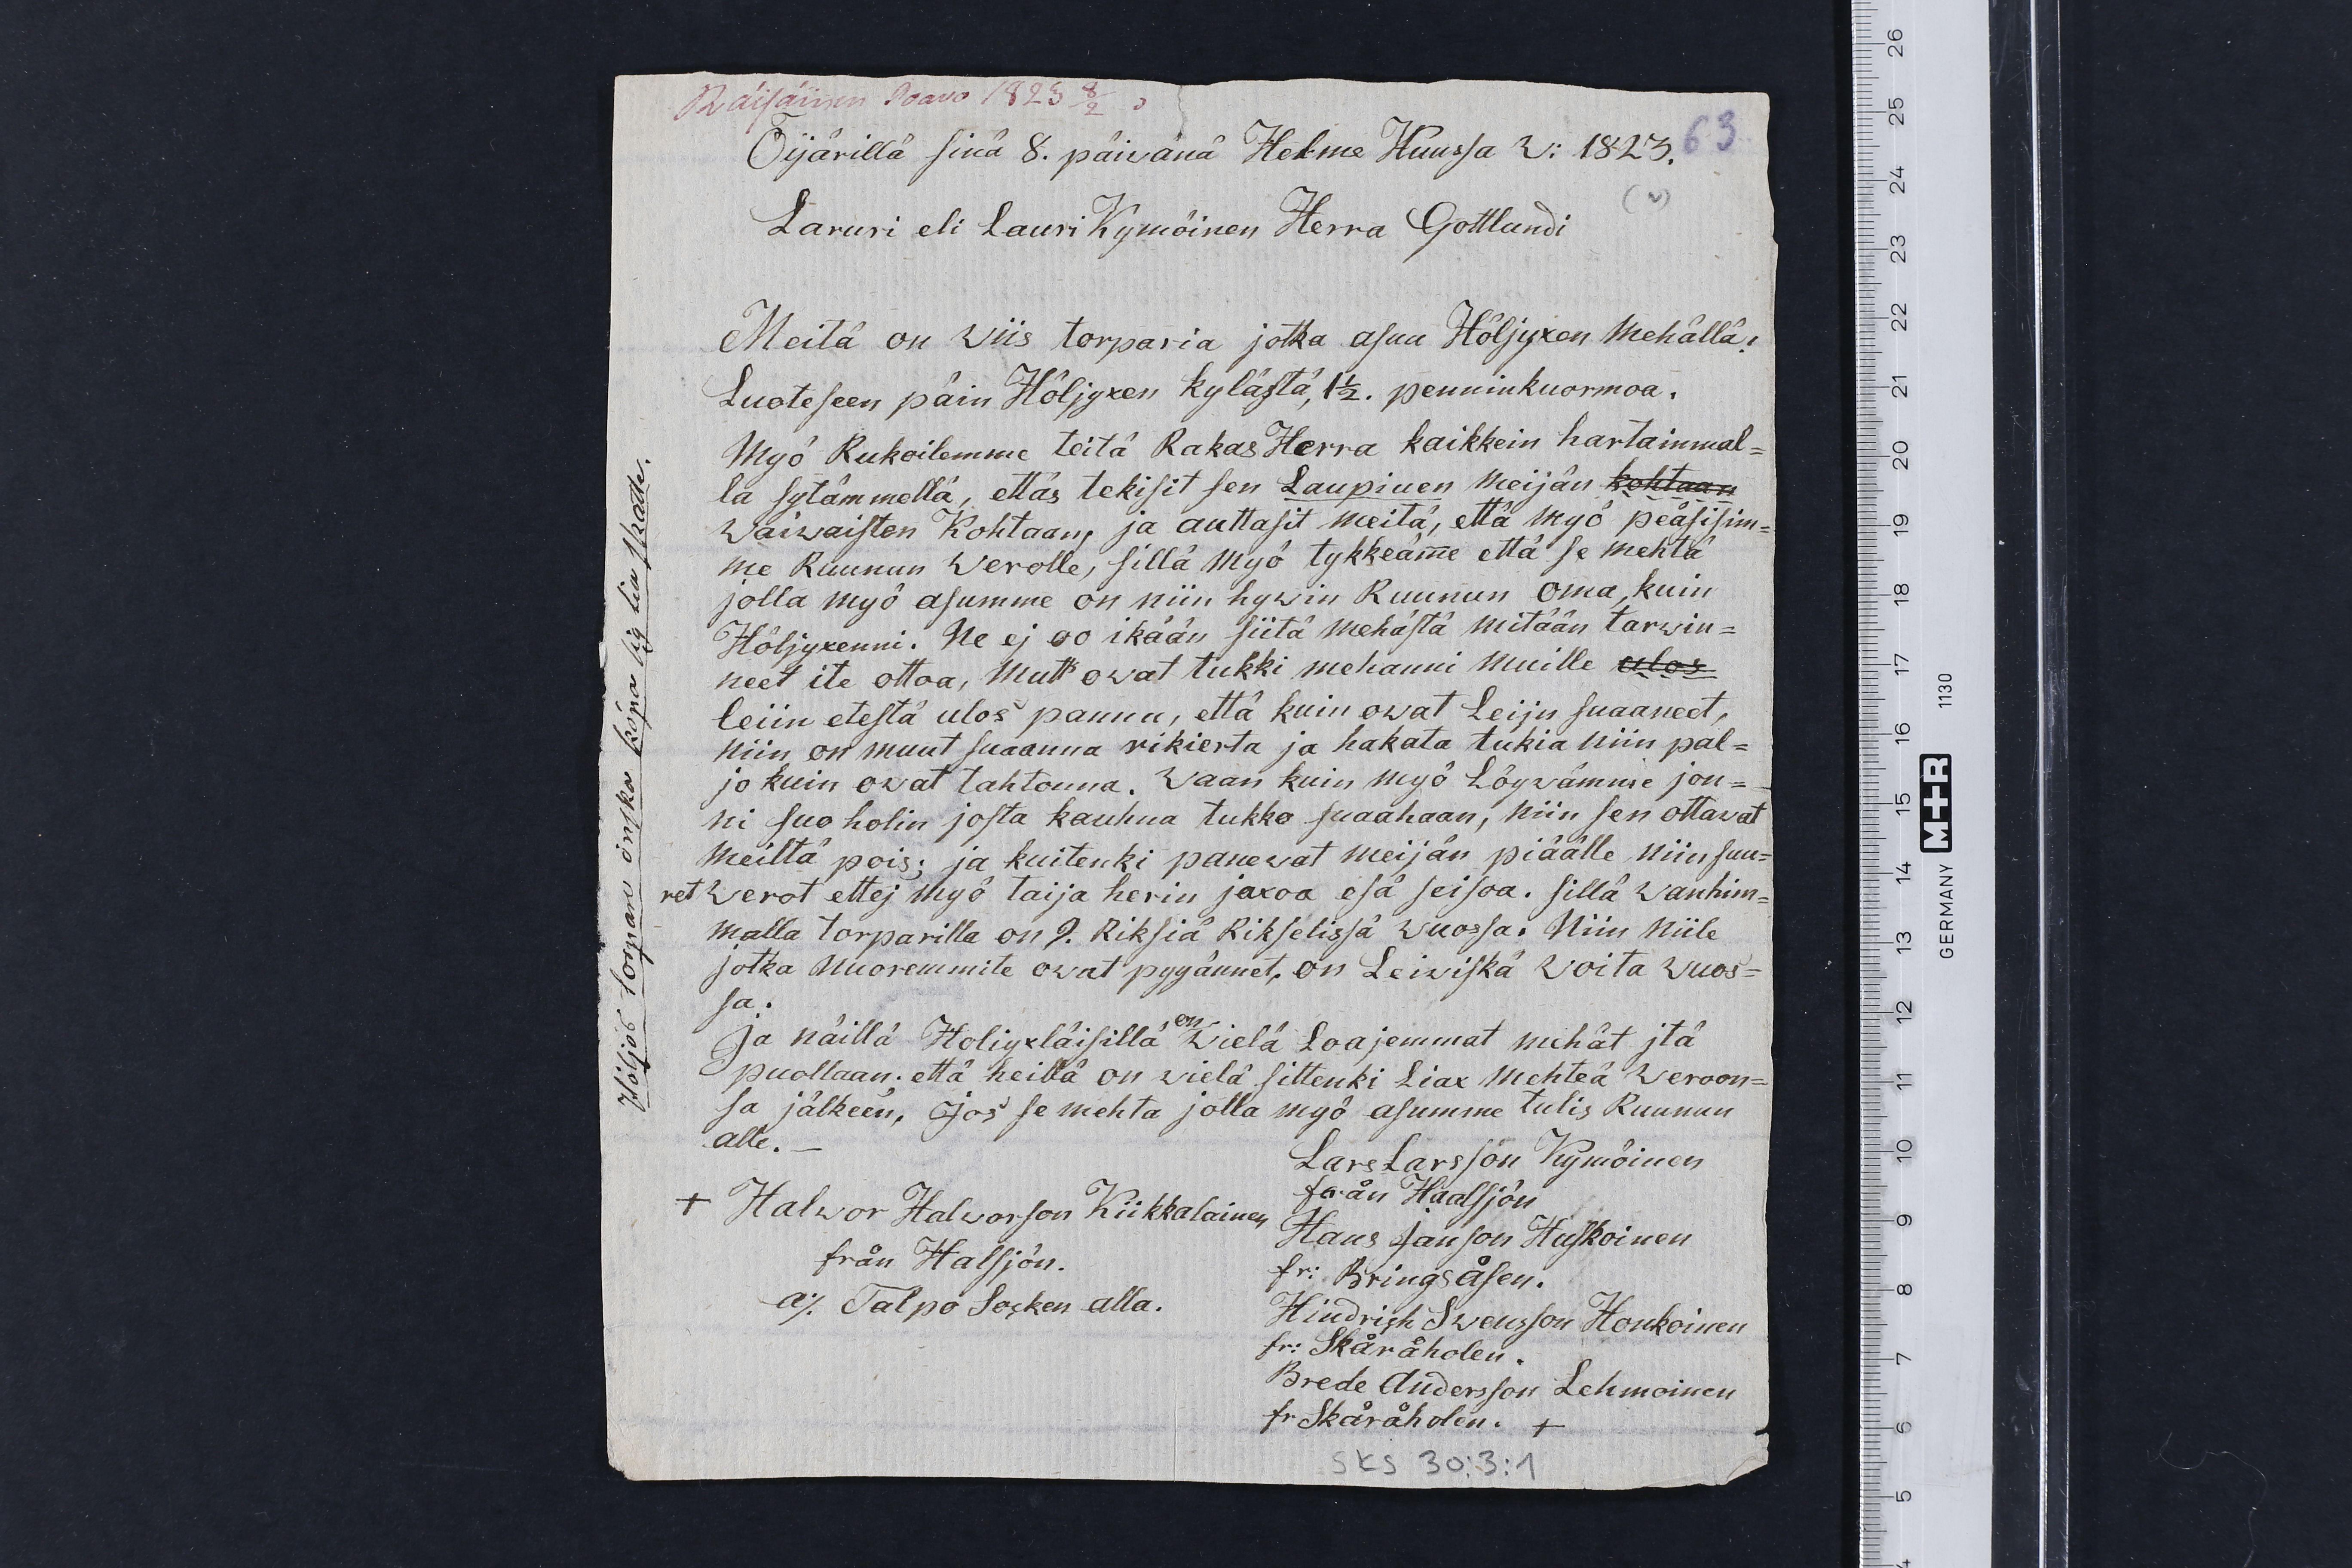 Räisäinen Paavo 1823 8/2
63
Öijärillä sinä 8. päivänä Helme Kuussa W: 1823.
(v)
Laruri eli Lauri Kymöinen Herra Gottlundi
Meitä on wiis torparia jotka asuu Höljyxen Mehällä:
Luoteseen päin Höljyxen kylästä, 1½. penninkuormoa.
Myö Rukoilemme teitä Rakas Herra kaikkein hartaimmal=
la sytämmellä, ettäs tekisit sen Laupiuen Meijän kohtaan
Waiwaisten Kohtaan, ja auttasit Meitä, että Myö peäsisim=
me Ruunun Werolle, sillä Myö tykkeäm̅e että se mehtä
jolla myö asumme on niin hywin Ruunun Oma, kuin
Höljyxenni. Ne ej oo ikään siitä Mehästä Mitään tarwin=
neet ite ottoa, Mutt owat tukki mehanni Muille ulos
leiin etestä ulos panna, että kuin owat Leiju suaaneet,
Niin on muut suaanna rikierta ja hakata tukia Niin pal=
jo kuin owat tahtonna. Waan kuin Myö Löywämme jon=
ni suo holin josta kauhua tukko suaahaan, Niin sen ottavat
Meiltä pois; ja kuitenki panewat Meijän piäälle Niin suu=
ret Werot ettej Myö taija herin jaxoa esä seisoa. sillä Wanhim=
malla torparilla on 9. Riksiä Rikselissä Wuossa. Niin Niile
jotka Nuoremmite owat pyyännet, on Leiwiskä Woita Wuos=
sa.
Ja näillä Holiyxläisillä on wielä Loajemmat mehät jtä
puollaan. että heillä on wielä sittenki Liax Mehteä Weroon=
sa jälkeen, Jos se mehta jolla myö asumme tulis Ruunun
alle. —
Lars Larsson Kymöinen
från Haalsjön
+ Halwor Halworson Kiikkalainen
från Halsjön.
a/. Talpo Socken alla.
Hans Janson Huskoinen
fr: Bringsåsen.
Hindrich Swensson Honkoinen
fr: Skåråholen.
Brede Andersson Lehmoinen
fr Skåråholen. +
SKS 30:3:1
Höljös torpare önskar köpa sig tia skatte.
26
25
24
23
22
21
20
19
18
17
16
15
14
13
12
11
10
9
8
7
6
5
4
GERMANY M+R 1130